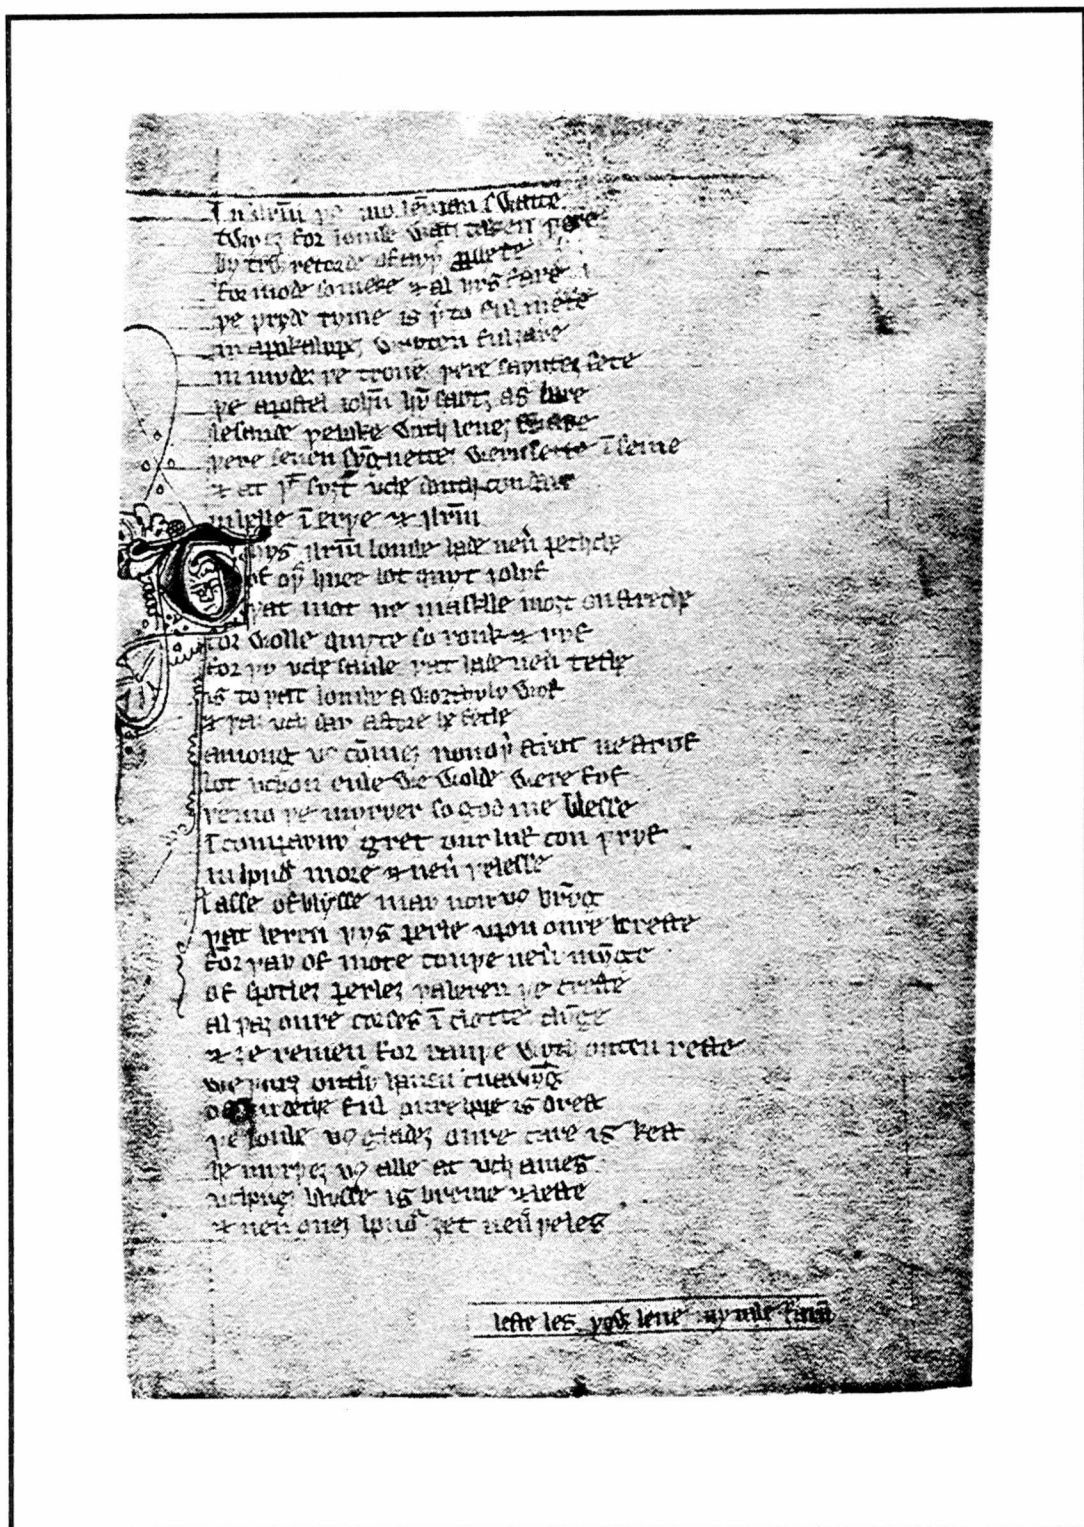 In ilrm̄ þꝰ my lēman swete
twyez for lombe watz taken þare
by trw recorde of ayþ̄ ꝓhete
for mode so meke & al hys fare
þe þryde tyme is þ̄to ful mete
in apokalypez wryten ful ȝare
in mydez þe trone þere sayntez sete
þe apostel ioħn hȳ saytz as bare
lesande þe boke with leuez sware
þere seuen syngnettez wern sette ī seme
& at þᵗ syȝt vche douth con dare
in helle ī erþe & ilrm̄
Thys ilrm̄ lombe hade neū pechche
of oþ̄ huee bot quyt jolyf
þat mot ne masklle moȝt on streche
for wolle quyte so ronk & ryf
for þy vche saule þat hade neū teche
is to þat lombe a worthyly wyf
& þaȝ vch day a store he feche
among vꝰ cōmez nouþ̄ strot ne stryf
bot vchon enle we wolde were fyf
þe mo þe myryer so god me blesse
I compayny gret our luf con þryf
in honoᵘʳ more & neū þe lesse
lasse of blysse may non vꝰ brȳg
þat beren þys perle vpon oure bereste
for þay of mote couþe neū mȳge
of spotlez perlez þa beren þe creste
al þaȝ oure corses ī clottez clȳge
& ȝe remen for rauþe wyth outen reste
we þurȝ outly hauen cnawȳg
of on dethe ful oure hope is drest
þe lombe vꝰ gladez oure care is kest
he myrþez vꝰ alle at vch a mes
vchonez blysse is breme & beste
& neū onez honoᵘʳ ȝet neū þe les
leste les þow leue my tale farād̄